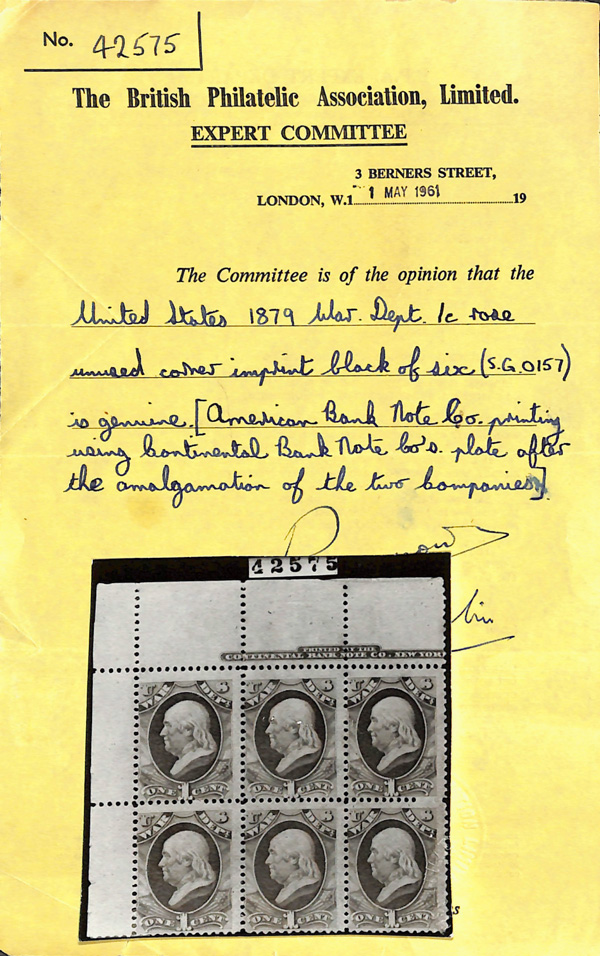 No. 42575
The British Philatelic Association, Limited.
EXPERT COMMITTEE
3 BERNERS STREET,
LONDON, W.1 1 MAY 1961 19
The Committee is of the opinion that the
United States 1879 War. Dept. 1c rose
unused corner imprint block of six (S.G.0157)
is genuine. [American Bank Note Co. printing
using Continental Bank Note Co's. plate after
the amalgamation of the two Companies].
42575
PRINTED BY THE
CONTINENTAL BANK NOTE CO. NEW YORK
U S U S U S
WAR DEPT. WAR DEPT. WAR DEPT.
ONE 1 CENT ONE 1 CENT ONE 1 CENT
U S U S U S
WAR DEPT. WAR DEPT. WAR DEPT.
ONE 1 CENT ONE 1 CENT ONE 1 CENT